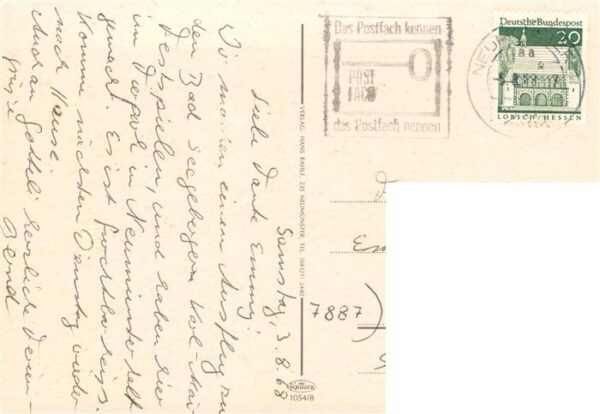 Samstag, 3.8.68
Liebe Tante Emmy!
Wir machen einen Ausflug zu
den Bad Segebergen Karl-Mai
Festspielen, und haben hier
im Tierpark in Neumünster halt
gemacht. Es ist furchtbar heiss.
Komme nächsten Dienstag wieder
nach Hause.
Auch an herzliche
Grüße Bernd
VERLAG: HANS RAHLF, 235 NEUMÜNSTER, TEL. (04321) 2440
KRÜGER
1054/8
Das Postfach kennen
POST
FACH
das Postfach nennen
NEUM
aa
Deutsche Bundespost
20
LORSCH/HESSEN
7887)